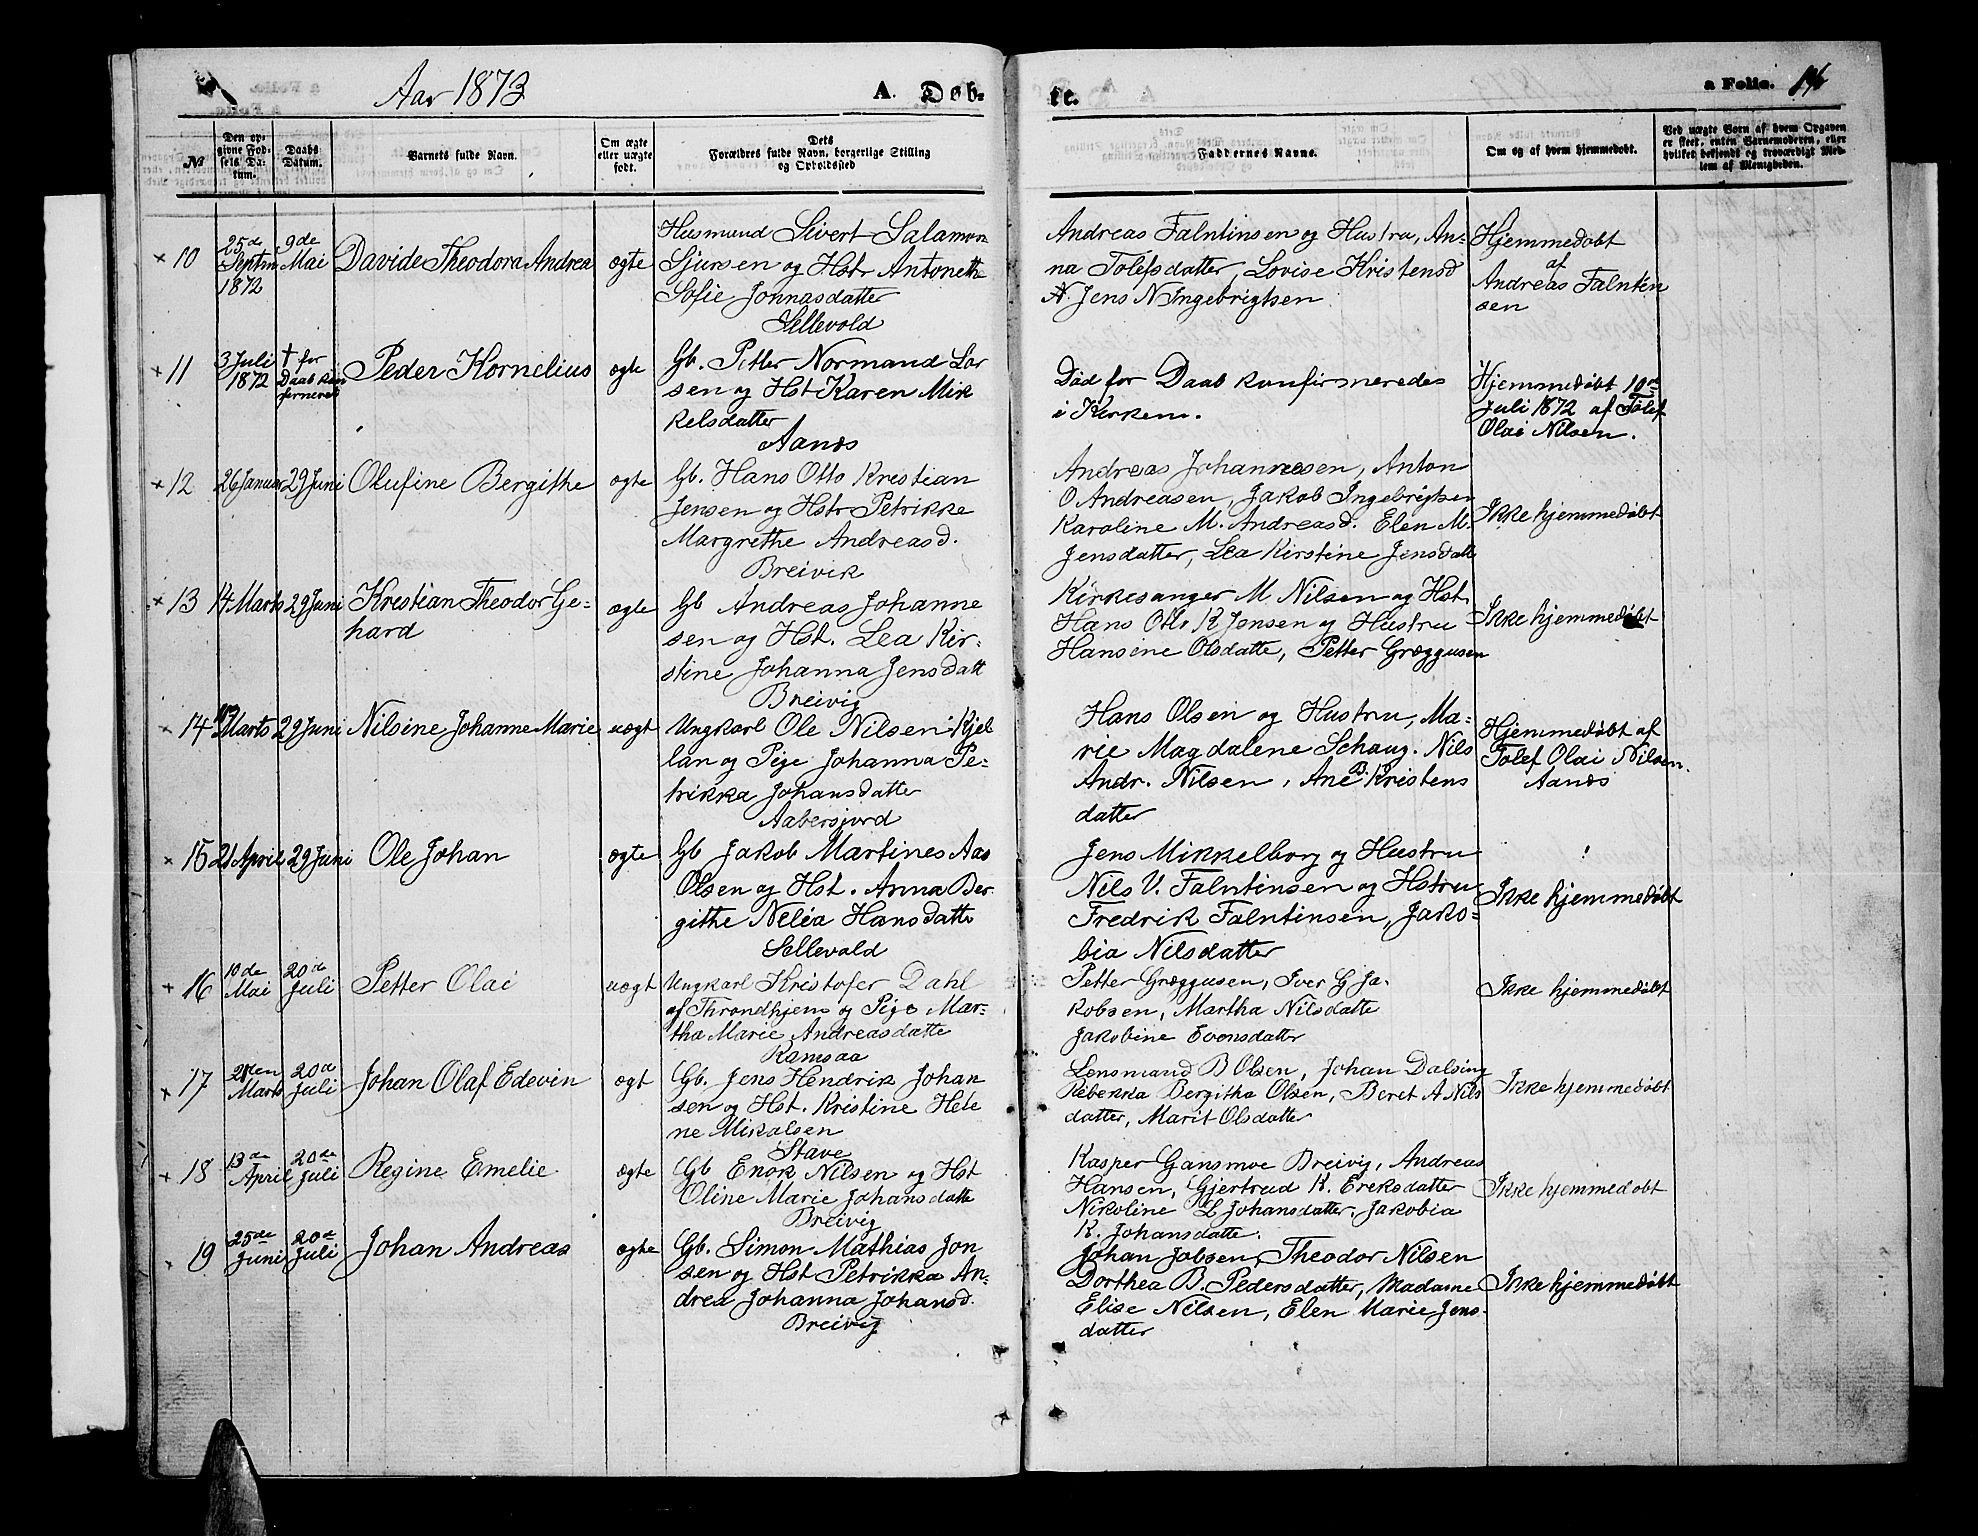 Aar 1873
A. Døb-
te.
a Folio. 14
№
Den op-
givne Fød-
sels Da-
tum.
Daabs
Datum.
Barnets fulde Navn.
Om ægte
eller uægte
født.
Dets
Forældres fulde Navn, borgerlige Stilling
og Opholdssted
Faddernes Navne.
Om og af hvem hjemmedøbt.
Ved uægte Børn af hvem Opgaven
er skeet, enten Barnemoderen, eller
hvilket bekjendt og troværdigt Med-
lem af Menigheden.
10
25de
Septm
1872
9de
Mai
Davide Theodora Andrea
ægte
Husmand Sivert Salamon
Sjursen og Hstr Antoneth
Sofie Jonnasdatter
Sellevold
Andreas Falntinsen og Hustru, An-
na Tolefsdatter, Lovise Kristensd
A. Jens N Ingebrigtsen
Hjemmedøbt
af
Andreas Falntin
sen
11
3 Juli
1872
† for
Daab kon
fermered
Peder Kornelius
ægte
Gb. Petter Normand Lar
sen og Hst Karen Mik
kelsdatter
Aanes
Død for Daab konfirmeredes
i Kirken.
Hjemmedøbt 10de
Juli 1872 af Tolef
Olai Nilsen.
12
26 Januar
29 Juni
Olufine Bergithe
ægte
Gb. Hans Otto Kristian
Jensen og Hstr Petrikke
Margrethe Andreasd.
Breivik
Andreas Johannesen, Anton
O. Andreasen, Jakob Ingebrigtsen
Karoline M. Andreasd. Elen M.
Jensdatter, Lea Kirstine Jensdatt
Ikke hjemmedøbt
13
14 Marts
29 Juni
Kristian Theodor Ge-
hard
ægte
Gb Andreas Johanne
sen og Hst. Lea Kir-
stine Johanna Jensdatt
Breivig
Kirkesanger M. Nilsen og Hst.
Hans Otto K Jensen og Hustru
Hansine Olsdatte, Petter Græggusen
Ikke hjemmedøbt
14
Marts
29 Juni
Nilsine Johanne Marie
uægt
Ungkarl Ole Nilsen Kjel
lan og Pige Johanna Pe-
trikka Johansdatter
Aabersjord
Hans Olsen og Hustru, Ma-
rie Magdalene Schaug. Nils
Andr. Nilsen, Ane B. Kristens
datter
Hjemmedøbt af
Tolef Olai Nilsen.
Aanes
15
21 April
29 Juni
Ole Johan
ægte
Gb Jakob Martines Aas
Olsen og Hst. Anna Ber
githe Neléa Hansdatte
Sellevold
Jens Mikkelborg og Hustru
Nils V. Falntinsen og Hstru
Fredrik Falntinsen, Jako-
bia Nilsdatter
Ikke hjemmedøbt
16
10de
Mai
20de
Juli
Petter Olai
uægt
Ungkarl Kristofer Dahl
af Throndhjem og Pige Mar-
tha Marie Andreasdatte
Ramsaa
Petter Græggusen, Iver G Ja-
kobsen, Martha Nilsdatte
Jakobine Evensdatter
Ikke hjemmedøbt
17
Marts
20de
Juli
Johan Olaf Edevin
ægt
Gb. Jens Hendrik Johan
sen og Hst. Kristine Hele
ne Mikalsen
Stave
Lensmand B Olsen, Johan Dalsing
Rebekka Bergitha Olsen, Beret A Nils
datter, Marit Olsdatter
Ikke hjemmedøbt
18
13de
April
20de
Juli
Regine Emelie
ægte
Gb Enok Nilsen og Hst
Oline Marie Johansdatte
Breivig
Kasper Gansmoe Breivig, Andreas
Hansen, Gjertrud K. Ereksdatter
Nikoline L Johansdatter, Jakobia
K. Johansdatte.
Ikke hjemmedøbt
19
25de
Juni
20de
Juli
Johan Andreas
ægte
Gb. Simon Mathias Jon
sen og Hst Petrikka An-
drea Johanna Johansd.
Breivig
Johan Jobsen, Theodor Nilsen
Dorthea B. Pedersdatter, Madame
Elise Nilsen, Elen Marie Jens-
datter
Ikke hjemmedøbt